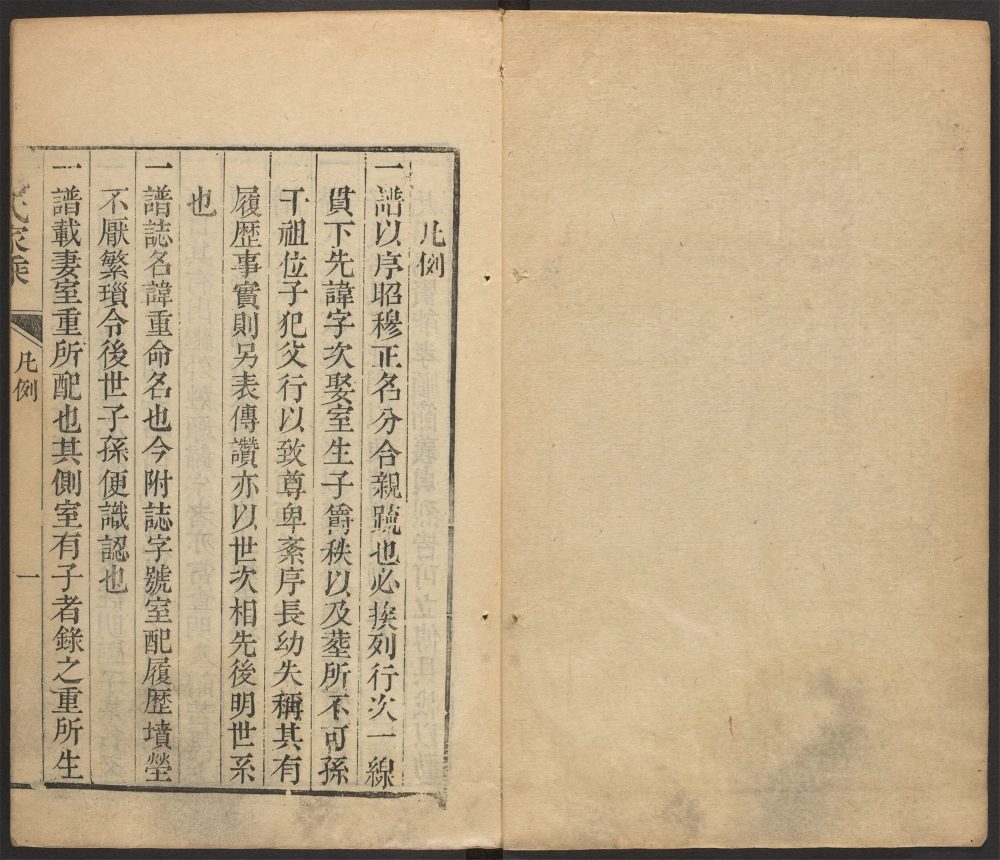 凡例
一譜以序昭穆正名分合親䟽也必挨列行次一線
貫下先諱字次娶室生子爵秩以及塟所不可孫
干祖位子犯父行以致尊卑紊序長幼失稱其有
履歷事實則另表傳讚亦以世次相先後明世系
也
一譜誌名諱重命名也今附誌字號室配履歷墳塋
不厭繁瑣令後世子孫便識認也
一譜載妻室重所配也其側室有子者錄之重所生
氏家乘
凡例
一